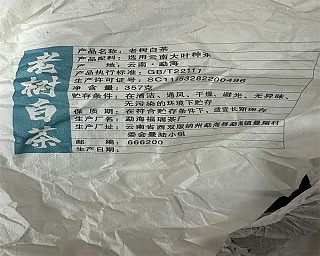 老树白茶
产品名称：老树白茶
产品配料：选用云南大叶种茶
产 地：云南·勐海
产品执行标准：GB/T22111
生产许可证号：SC11453282200496
净 含 量：357克
贮存条件：在清洁、通风、干燥、避光、无异味、
无污染的环境下贮存
保 质 期：在符合贮存条件下，适宜长期保存
生产厂名：勐海福瑞茶厂
生产厂址：云南省西双版纳州勐海县勐海镇曼尾村
委会曼陆小组
邮 编：666200
生产日期：